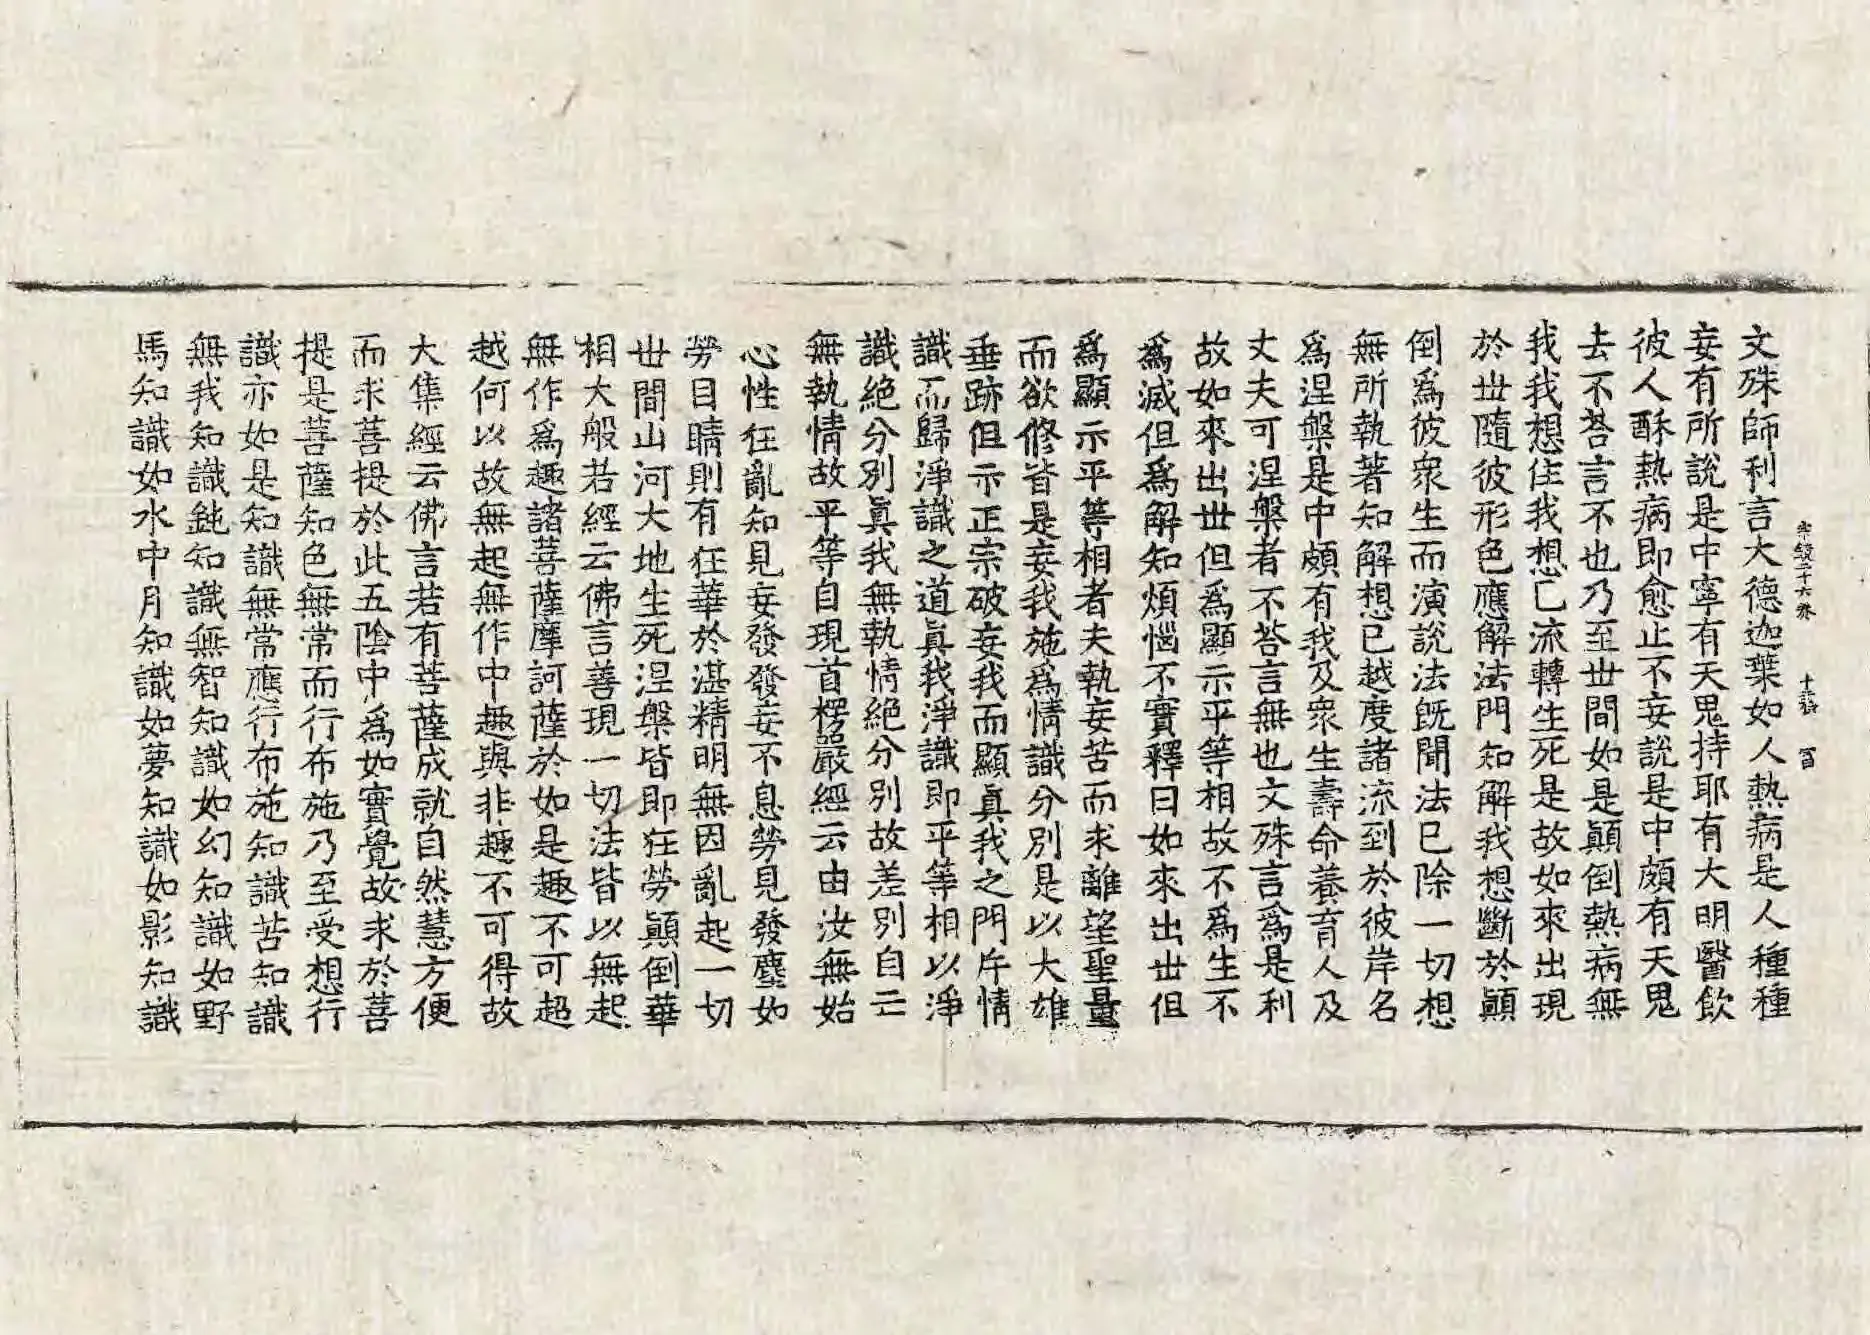 宗鏡二十六卷 十二張 冨
文殊師利言大德迦葉如人熱病是人種種
妄有所說是中寧有天鬼持耶有大明醫飲
彼人酥熱病即愈止不妄說是中頗有天鬼
去不荅言不也乃至丗間如是顚倒熱病無
我我想住我想已流轉生死是故如來出現
於丗隨彼形色應解法門知解我想斷於顚
倒爲彼衆生而演說法旣聞法已除一切想
無所執著知解想已越度諸流到於彼岸名
爲涅槃是中頗有我及衆生壽命養育人及
丈夫可涅槃者不荅言無也文殊言爲是利
故如來出丗但爲顯示平等相故不爲生不
爲滅但爲解知煩惱不實釋曰如來出丗但
爲顯示平等相者夫執妄苦而求離望聖量
而欲修皆是妄我施爲情識分別是以大雄
垂跡但示正宗破妄我而顯眞我之門斥情
識而歸淨識之道眞我淨識即平等相以淨
識絕分別眞我無執情絕分別故差別自亡
無執情故平等自現首楞嚴經云由汝無始
心性狂亂知見妄發發妄不息勞見發塵如
勞目睛則有狂華於湛精明無因亂起一切
丗間山河大地生死涅槃皆即狂勞顚倒華
相大般若經云佛言善現一切法皆以無起
無作爲趣諸菩薩摩訶薩於如是趣不可超
越何以故無起無作中趣與非趣不可得故
大集經云佛言若有菩薩成就自然慧方便
而求菩提於此五陰中爲如實覺故求於菩
提是菩薩知色無常而行布施乃至受想行
識亦如是知識無常應行布施知識苦知識
無我知識鈍知識無智知識如幻知識如野
馬知識如水中月知識如夢知識如影知識